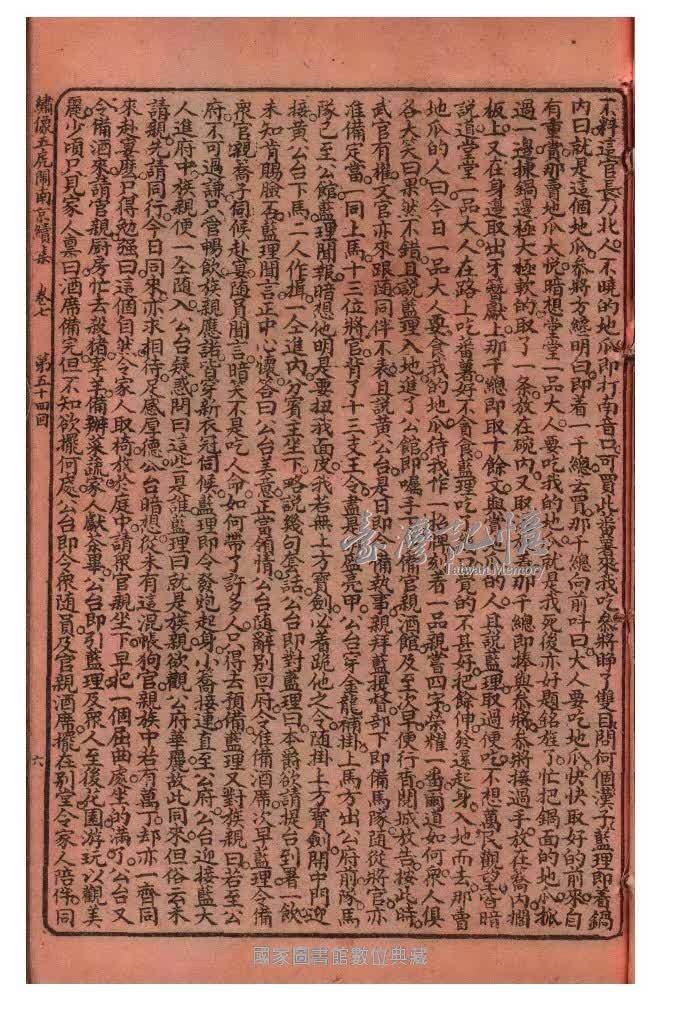 不料這官長乃北人不曉的地瓜即打南音曰可買此番薯來我吃參將睜了雙目問何個漢子藍理即看鍋
內曰就是這個地瓜參將方纔明曰即着一千總去買那千總向前叫曰大人要吃地瓜快快取好的前來自
有重賞那賣地瓜大悅暗想堂堂一品大人要吃我的地瓜就是我死後亦好題銘旌了忙把鍋面的地瓜抓
過一邊揀鍋邊極大極軟的取了一條放在碗內又取 那千總即捧與參將參將接過手放在轎內擱
板上又在身邊取出牙簪獻上那千總即取十餘文與賣地瓜的人且說藍理取過便吃不想萬民觀望暗
說道堂堂一品大人在路上吃番薯好不貪食藍理吃 覺的不甚好把餘伸發還起身入地而去那賣
地瓜的人曰今日一品大人要食我的地瓜待我作一招牌寫着一品親嘗四字榮耀一番爾道如何衆人俱
各大笑曰果然不錯且說藍理入地進了公館即囑手下 備官親酒館及至次早便行香關城放告按此時
武官有權文官亦來跟隨同伴不表且說黃公台是日即令備執事親拜藍提督部下即備馬隊隨從將官亦
准備定當一同上馬十三位將官背了十三支王令盡是盔亮甲公台穿金龍補掛上馬方出公府前隊馬
隊已至公館藍理聞報暗想他明是要扭我面皮我若無上方寶劍必着跪他之令隨掛上方寶劍開中門迎
接黃公台下馬二人作揖一仝進內分賓主坐下略說幾句套話公台即對藍理曰本爵欲請提台到署一飲
未知肯賜臉否藍理聞言正中心懷答曰公台美意正當領情公台隨辭別回府令准備酒席次早藍理令備
衆官親轎子伺候赴宴隨員聞言暗笑不是吃人命如何帶了許多人只得去預備藍理又對族親曰若至公
府不可過謙只管暢飲族親應諾皆穿新衣冠伺候藍理即令發炮起身小轎接連直至公府公台迎接藍大
人進府中族親便一仝隨入公台疑惑問曰這些是誰藍理曰就是族親欲觀公府華麗故此同來但俗云未
請親先請同行今日同來亦求相待足感厚德公台暗想從未有這混帳狗官親族中若有萬丁却亦一齊同
來赴宴麽只得勉強曰這個自然令家人取椅放於庭中請衆官親坐下早把一個屈曲處坐的滿了公台又
令備酒來請官親厨房忙去殺猪宰羊備辦菜蔬家人獻茶畢公台即引藍理及衆人至後花園游玩以觀美
麗少頃只見家人稟曰酒席備完但不知欲擺何處公台即令衆隨員及官親酒席擺在别堂令家人陪伴同
繡像五虎鬧南京續集 卷七 第五十四回 六
臺灣記憶
Taiwan Memory
國家圖書館數位典藏